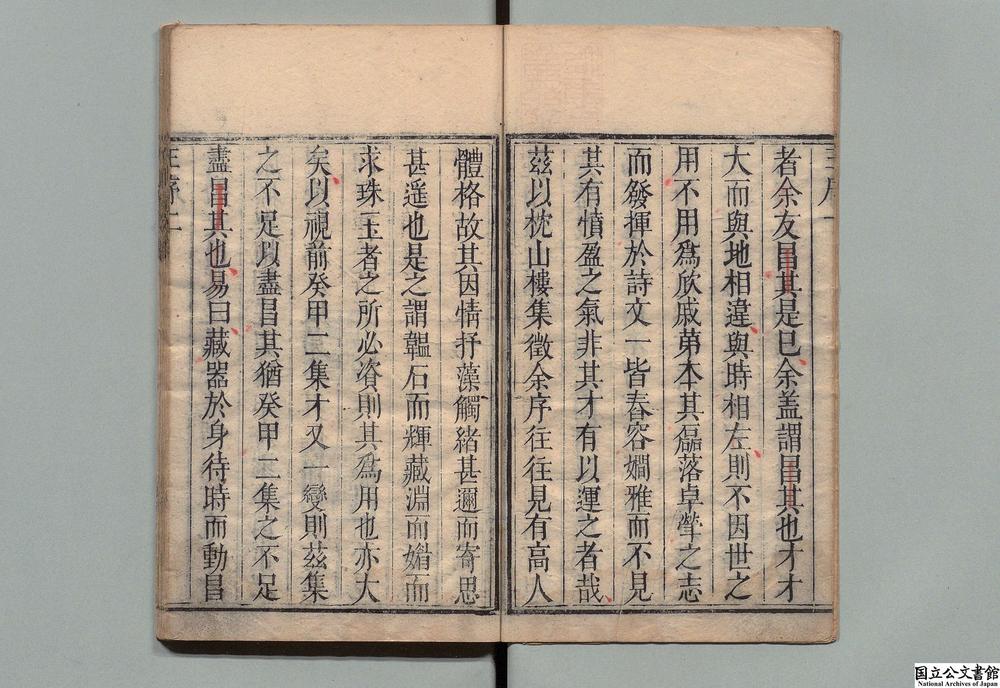 王序一
者余友昌其是已余蓋謂昌其也才才
大而與地相違與時相左則不因世之
用不用爲欣戚第本其磊落卓犖之志
而發揮於詩文一皆舂容嫺雅而不見
其有憤盈之氣非其才有以運之者哉
茲以枕山樓集徵余序往往見有高人
體格故其因情抒藻觸緒甚邇而寄思
甚遥也是之謂韞石而輝藏淵而媚而
求珠玉者之所必資則其爲用也亦大
矣以視前癸甲二集才又一變則茲集
之不足以盡昌其猶癸甲二集之不足
盡昌其也易曰藏器於身待時而動昌
王序二
国立公文書館
National Archives of Japan